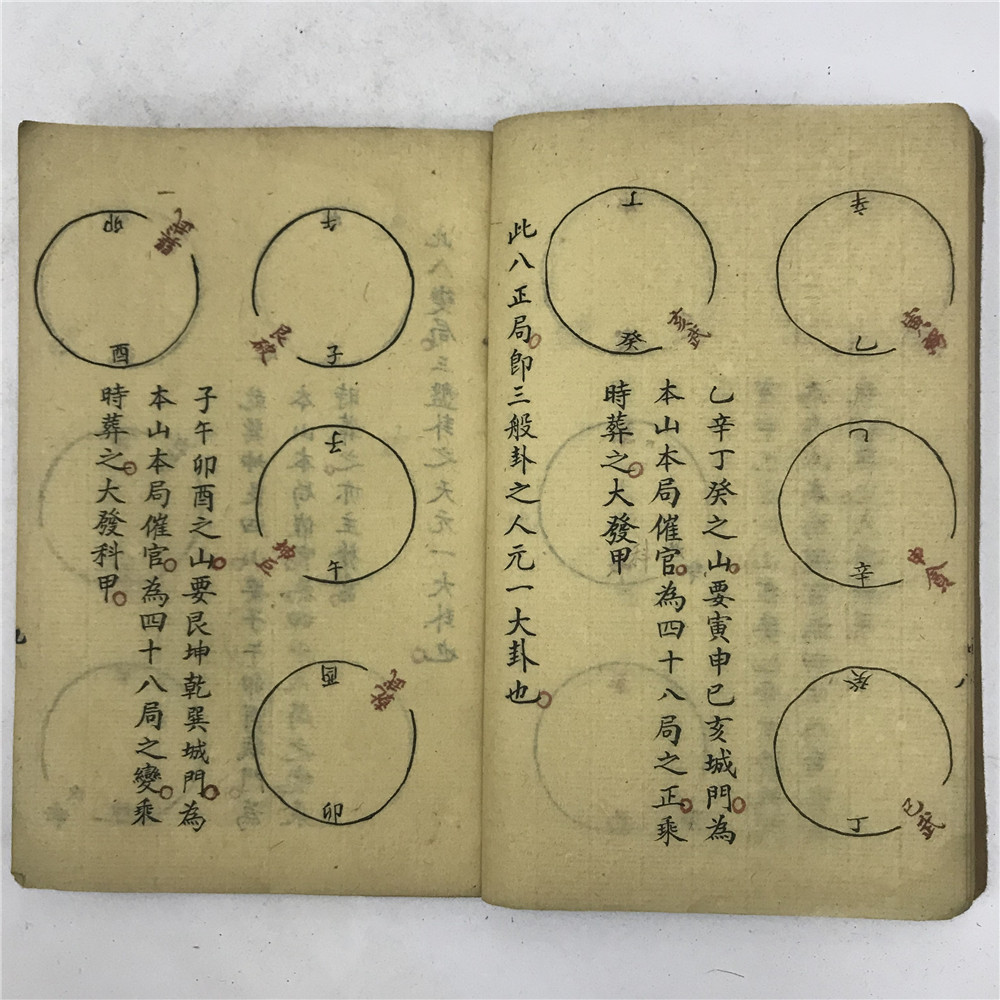 辛
乙
寅
乙
辛
申
癸
丁
巳武
乙辛丁癸之山要寅申巳亥城門為
本山本局催官為四十八局之正乘
時葬之大發甲
丁
癸
亥武
此八正局即三般卦之人元一大卦也
午
子
艮破
子
午
坤巨
酉
卯
乾
子午卯酉之山要艮坤乾巽城門為
本山本局催官為四十八局之變乘
時葬之大發科甲
卯
酉